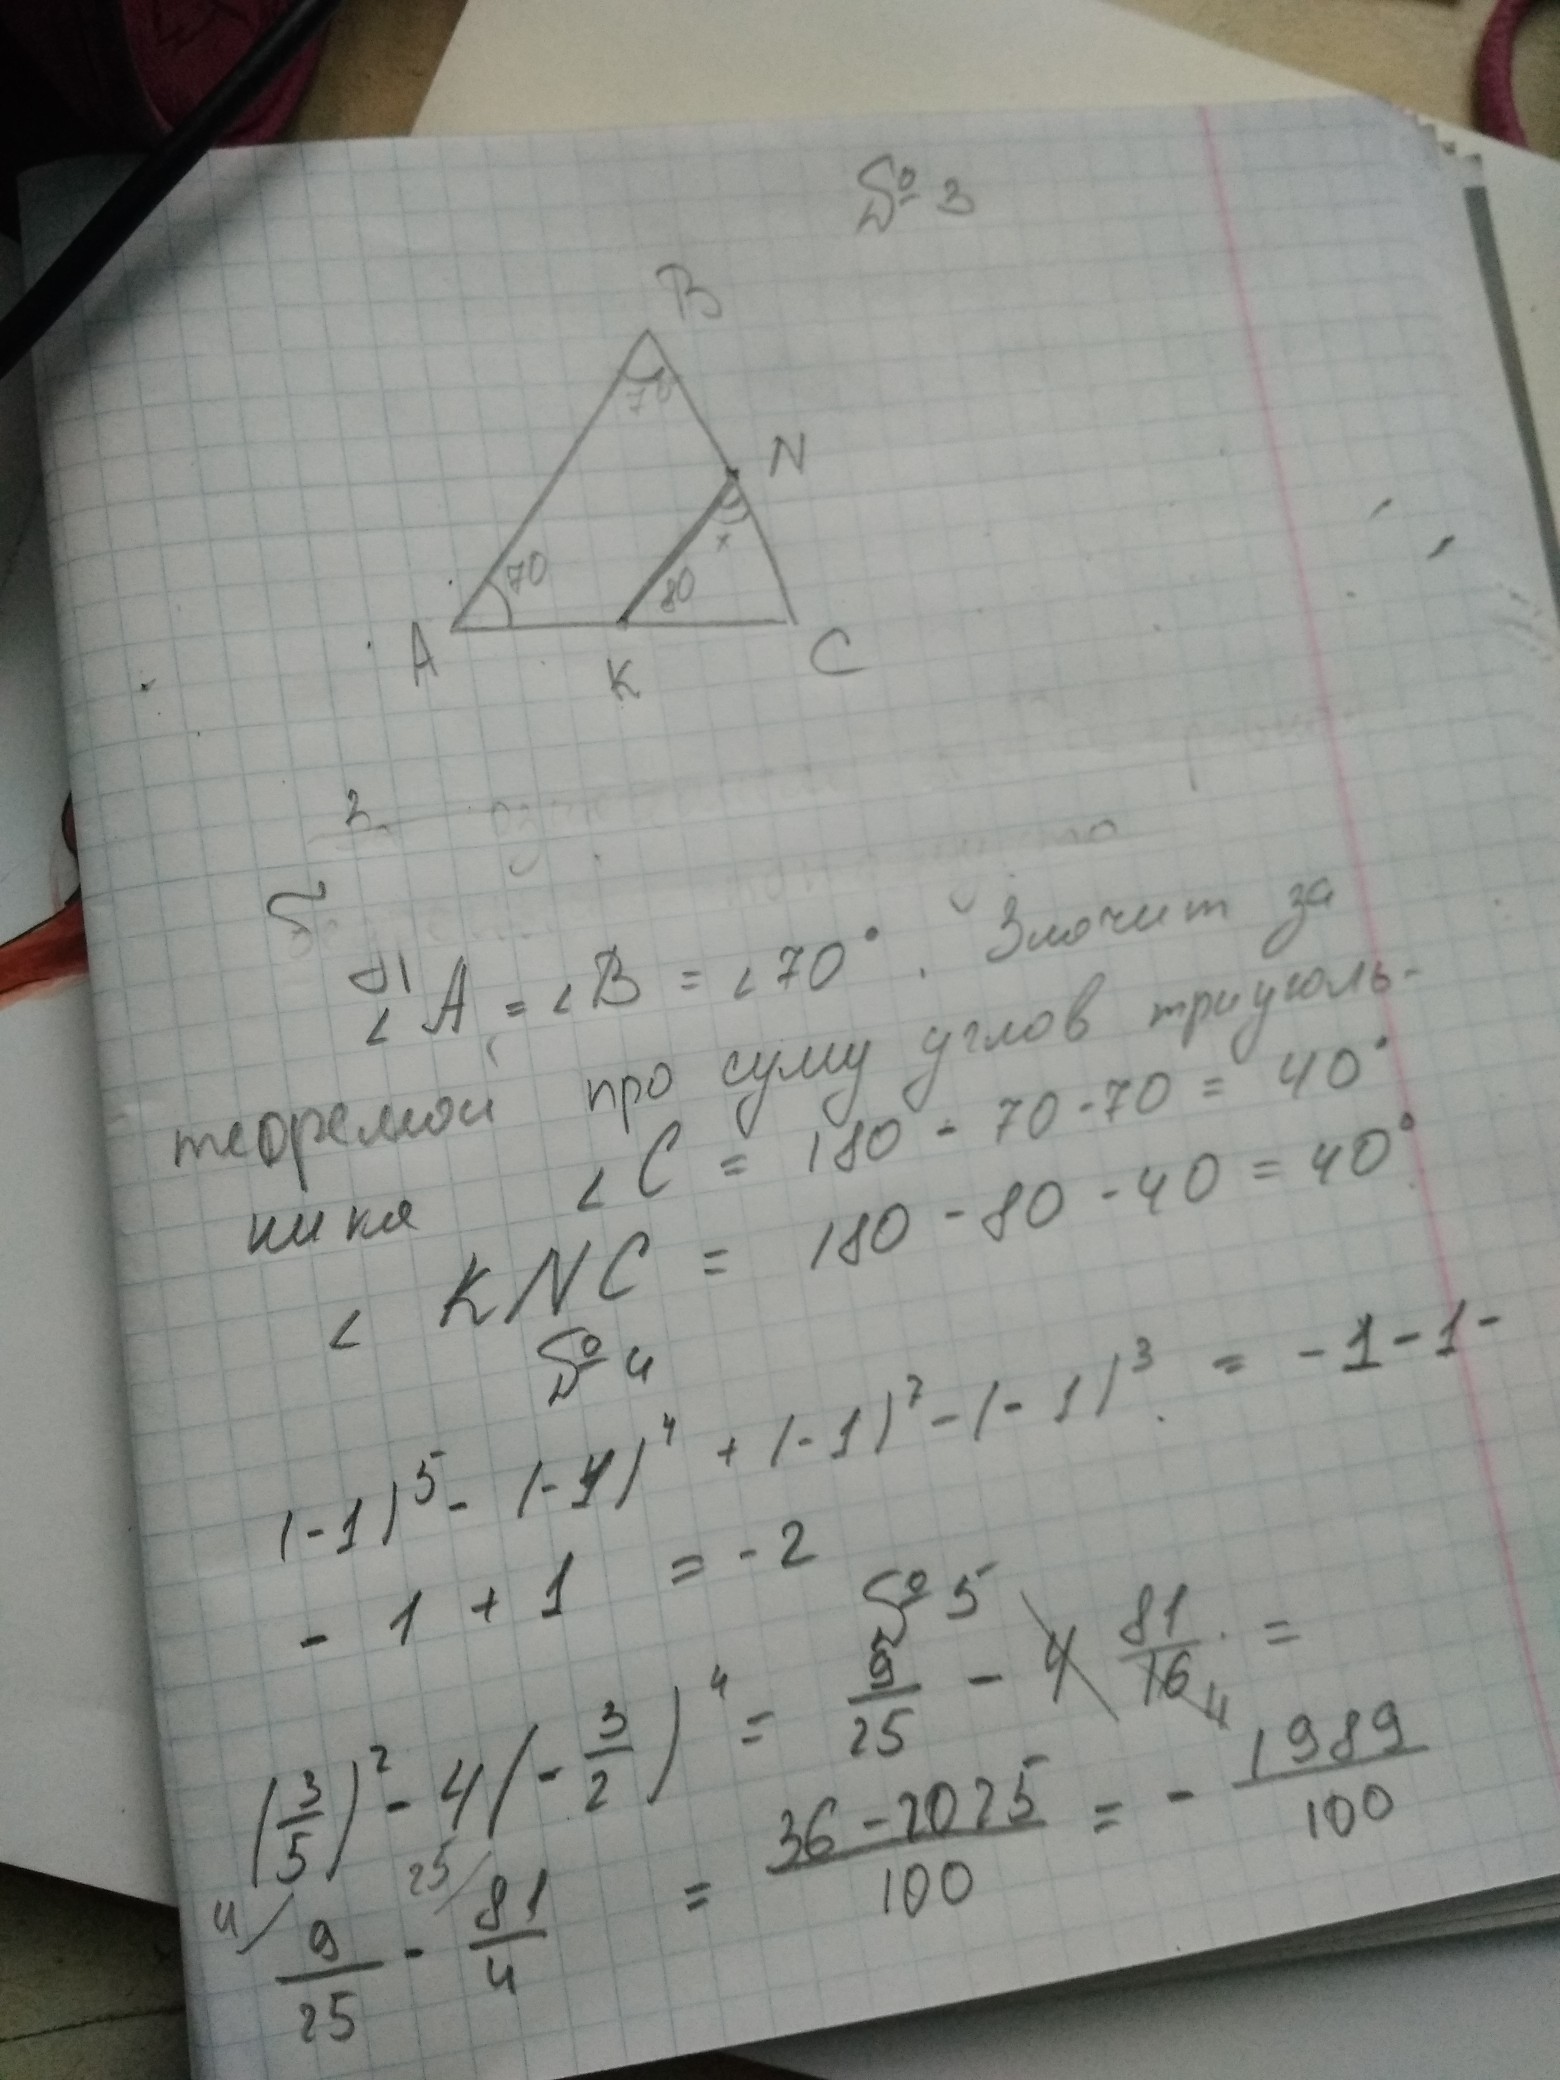 № 3
B
70
N
x
70
80
A
K
C
∠A = ∠B = ∠70°. Значит за
теоремой про суму углов триуголь-
ника ∠C = 180 - 70 - 70 = 40°
∠ KNC = 180 - 80 - 40 = 40°
№ 4
(-1)^5 - (-1)^4 + (-1)^7 - (-1)^3 = -1-1-
- 1 + 1 = -2
№ 5
(3/5)^2 - 4(-3/2)^4 = 9/25 - 4 81/16 4 =
4 9/25 - 25 81/4 = 36-2025/100 = - 1989/100